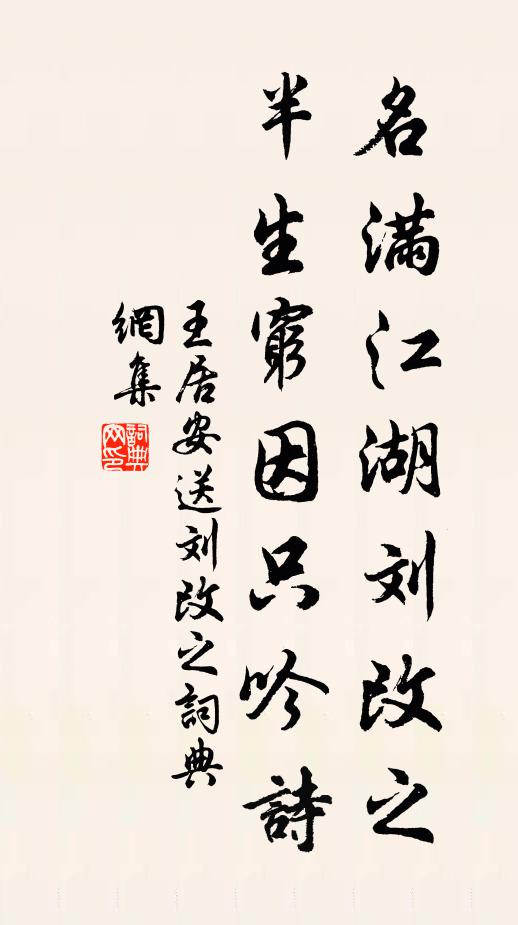 名满江湖刘改之
半生窮因只吟詩
王居安送刘改之詞典
網集
詞典
网印